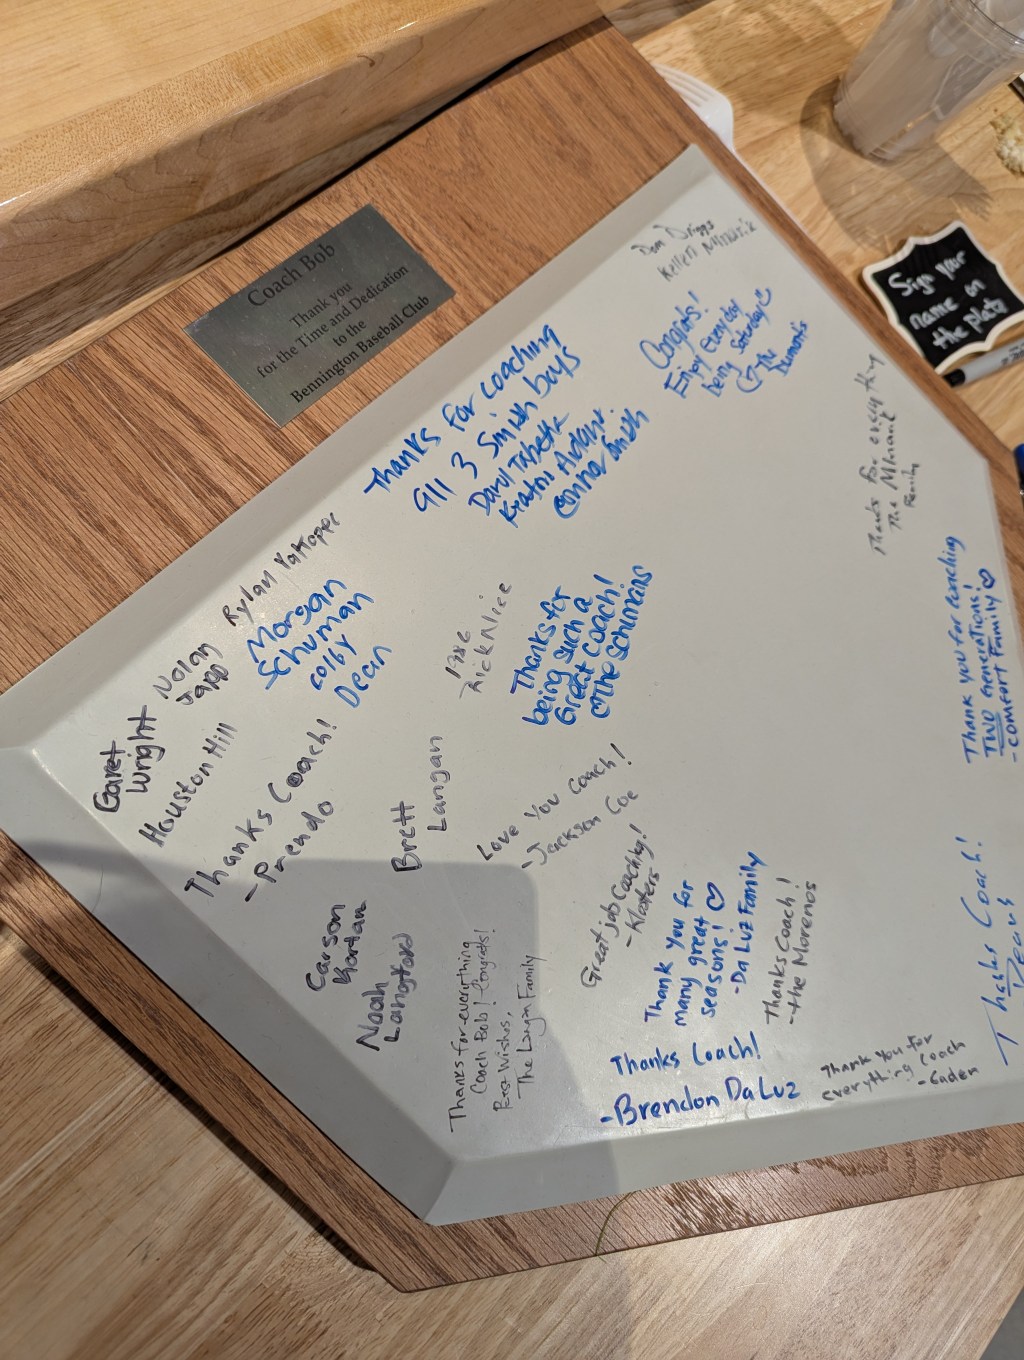 Coach Bob
Thank you
for the Time and Dedication
to the
Bennington Baseball Club
Sign your
name on
the plate
Dan Driggs
Kellen
Congrats!
Enjoy Everyday
being Saturday
The
Dumonts
Thanks for coaching
all 3 Smith boys
Daryl Tabetha
Kraton
Connor Smith
Thanks for everything
The
Family
Rylan
Morgan
Schuman
Colby
Dean
Nolan
Japp
Garet
Wright
Houston Hill
Thanks Coach!
-Prendo
Rick
Thanks for
being such a
Great Coach!
The Schumans
Thank you for coaching
TWO Generations!
-Comfort Family
Brett
Langan
Love You Coach!
-Jackson Coe
Great job Coaching!
Thank you for
many great
seasons!
-Da Luz Family
Thanks Coach!
-the Morenos
Carson
Noah
Thanks for everything
Coach Bob! Congrats!
Best Wishes,
The Langan Family
Thanks Coach!
-Brendon DaLuz
Thank you for
everything Coach
-Caden
Thanks Coach!